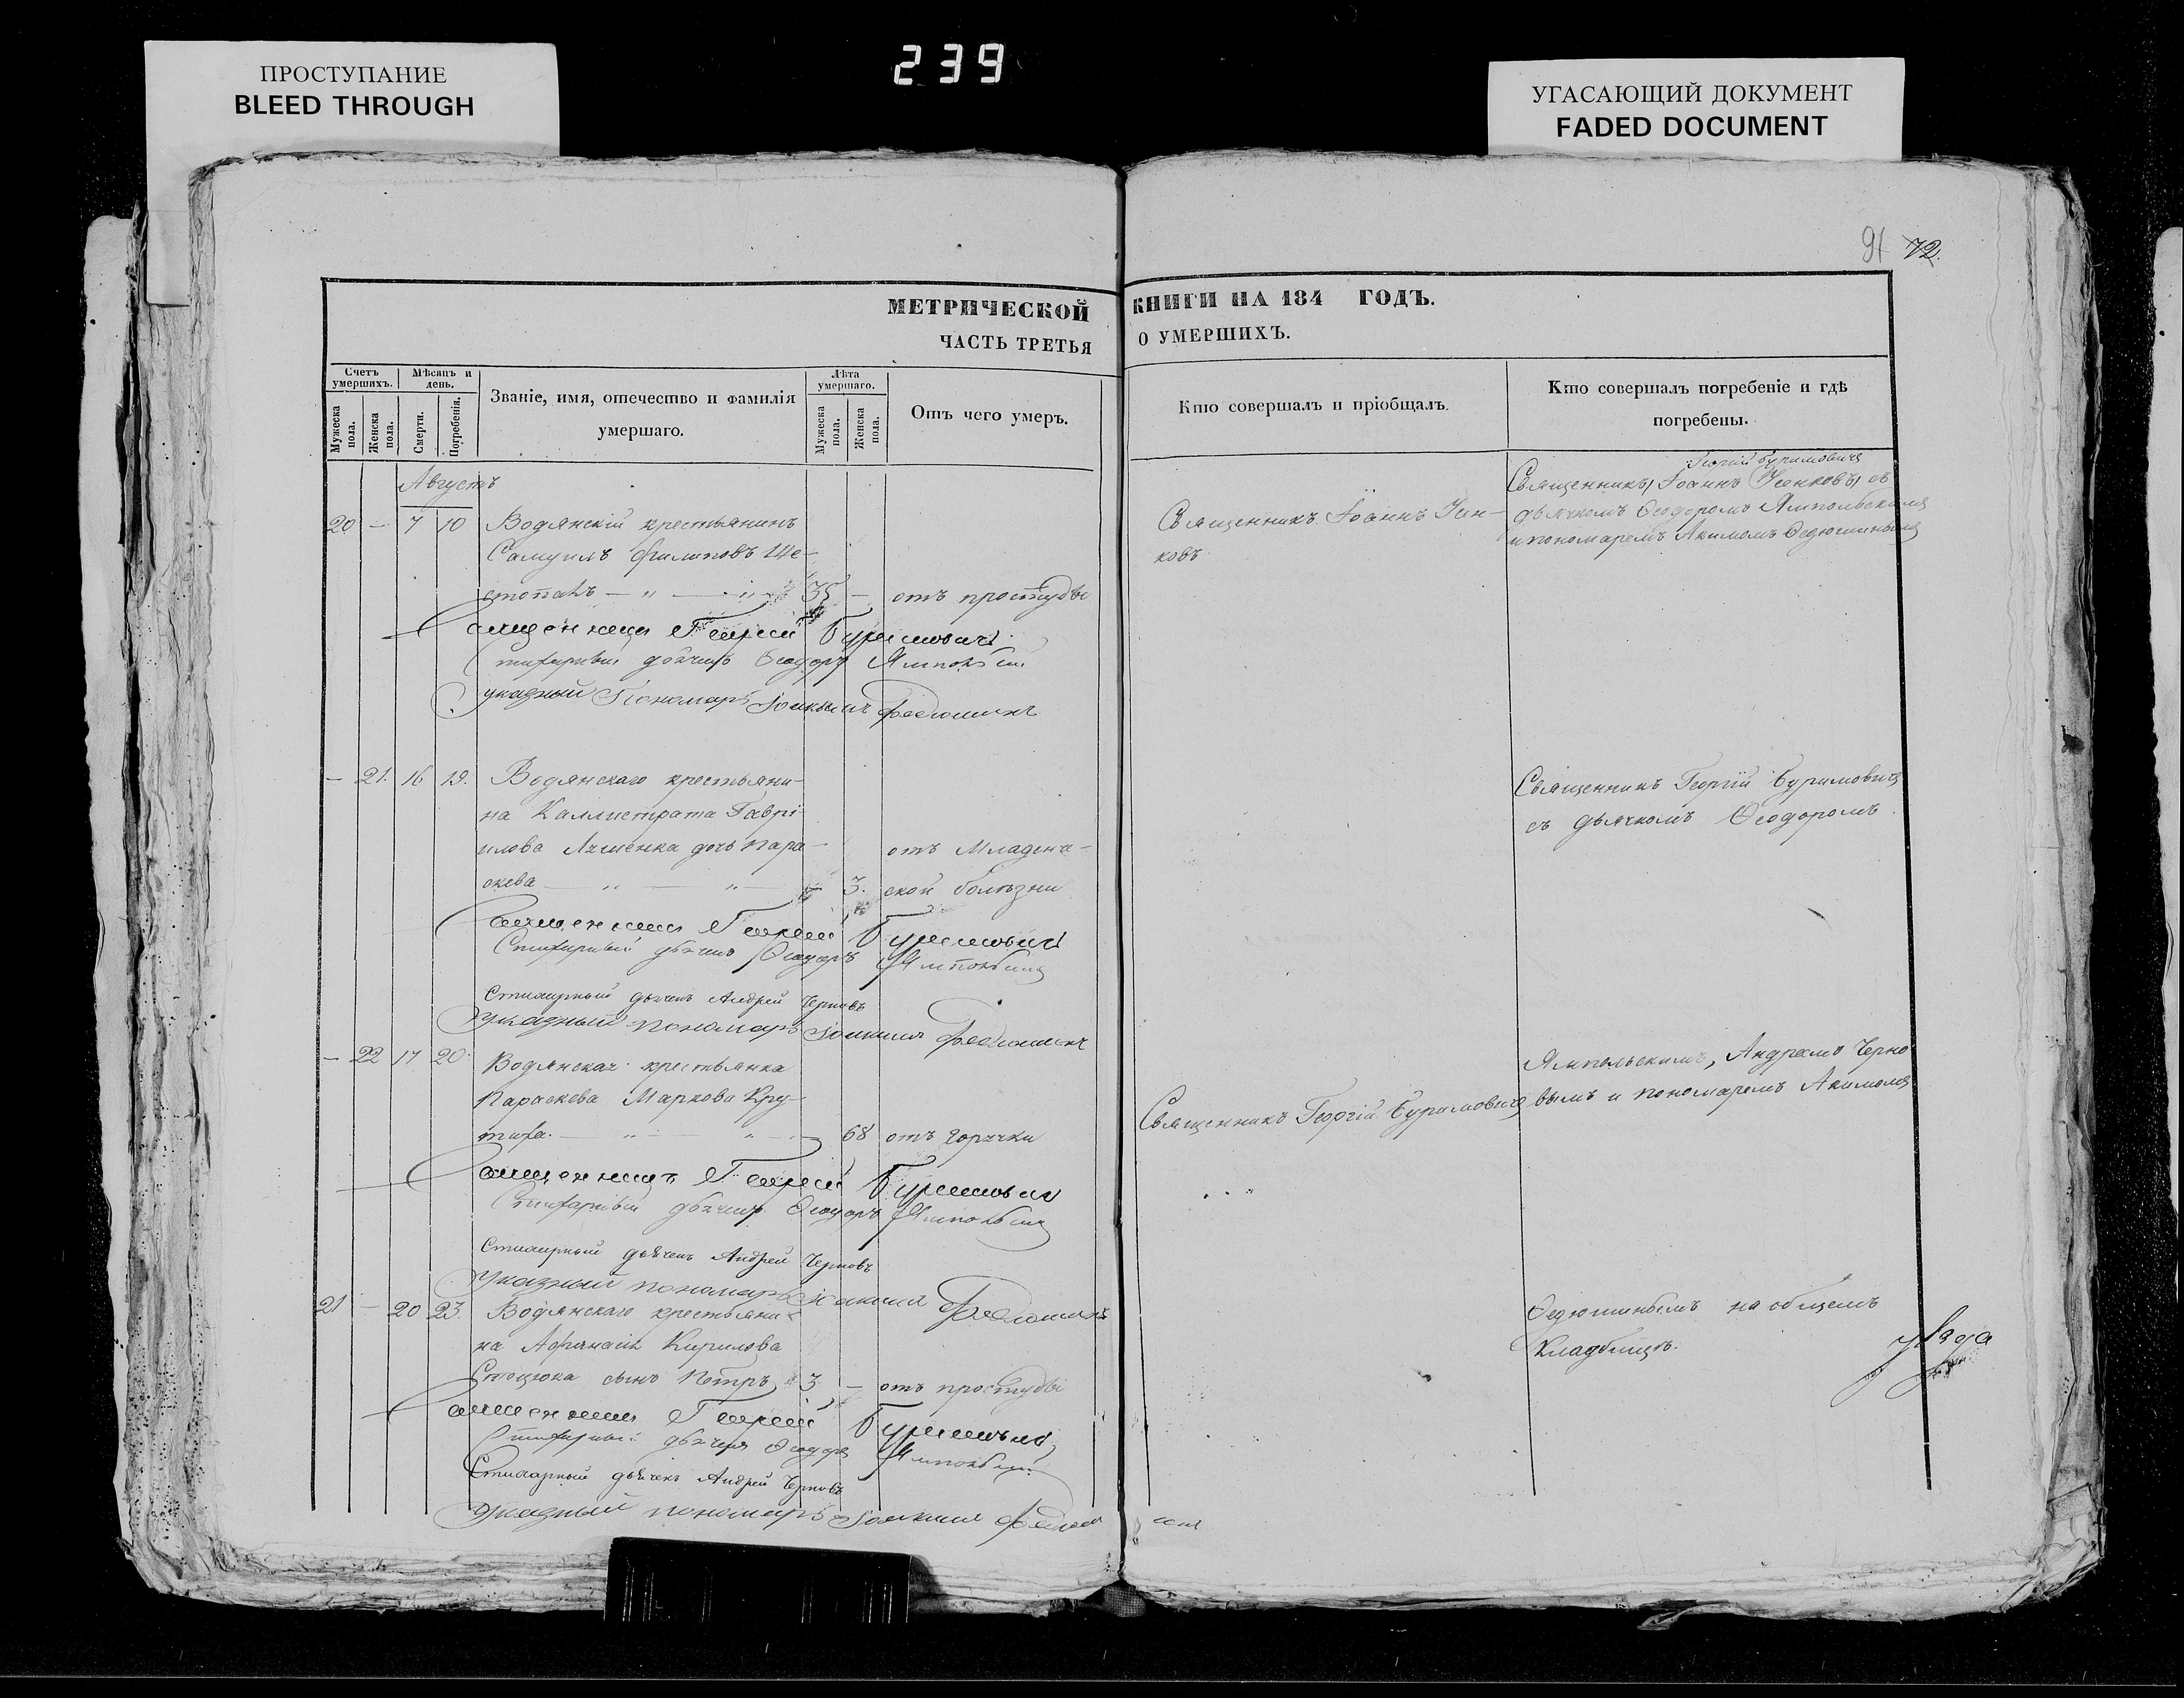 ПРОСТУПАНИЕ
BLEED THROUGH
239
УГАСАЮЩИЙ ДОКУМЕНТ
FADED DOCUMENT
91 72.
МЕТРИЧЕСКОЙ КНИГИ НА 184 ГОДЪ.
ЧАСТЬ ТРЕТЬЯ О УМЕРШИХЪ.
Счетъ умершихъ.
Мужеска пола.
Женска пола.
Мѣсяцъ и день.
Смерти.
Погребенія.
Званіе, имя, отечество и фамилія
умершаго.
Лѣта умершаго.
Мужеска пола.
Женска пола.
Отъ чего умеръ.
Кто совершалъ и пріобщалъ.
Кто совершалъ погребеніе и гдѣ
погребены.
Августъ
20 — 7 10 Водянскій крестьянинъ
Самуилъ Филиповъ Ше-
стопалъ — " — " 35 — отъ простуды
Священникъ Георгій Буримовичъ
Стихарный дьячекъ Ѳеодоръ Ямпольскій
указный Пономарь Іоакимъ Федюшинъ
Священникъ Іоаннъ Усен-
ковъ
Георгій Буримовичъ
Священникъ Іоаннъ Усенковъ съ
дьячкомъ Ѳеодоромъ Ямпольскимъ
и пономаремъ Акимомъ Ѳедюшинымъ
— 21. 16 19. Водянскаго крестьяни-
на Каллистрата Гаврі-
илова дочь Пара-
скева — " — " — 3. отъ Младенче-
ской болѣзни
Священникъ Георгій Буримовичъ
Стихарный дьячекъ Ѳеодоръ Ямпольскій
Стихарный дьячекъ Андрей Черновъ
Указный пономарь Іоакимъ Федюшинъ
Священникъ Георгій Буримовичъ
съ дьячкомъ Ѳеодоромъ
— 22 17 20. Водянская крестьянка
Параскева Маркова Кру-
— " — " — 68 отъ горячки
Священникъ Георгій Буримовичъ
Стихарный дьячекъ Ѳеодоръ Ямпольскій
Стихарный дьячекъ Андрей Черновъ
Указный пономарь Іоакимъ Федюшинъ
Священникъ Георгій Буримовичъ
Ямпольскимъ, Андреемъ Черно
вымъ и пономаремъ Акимомъ
21 — 20 23. Водянскаго крестьяни-
на Афанасія Кирилова
Стецюка сынъ Петръ 3 — отъ простуды
Священникъ Георгій Буримовичъ
Стихарный дьячекъ Ѳеодоръ Ямпольскій
Стихарный дьячекъ Андрей Черновъ
Указный пономарь Іоакимъ
Ѳедюшинымъ на общемъ
Кладбищѣ.